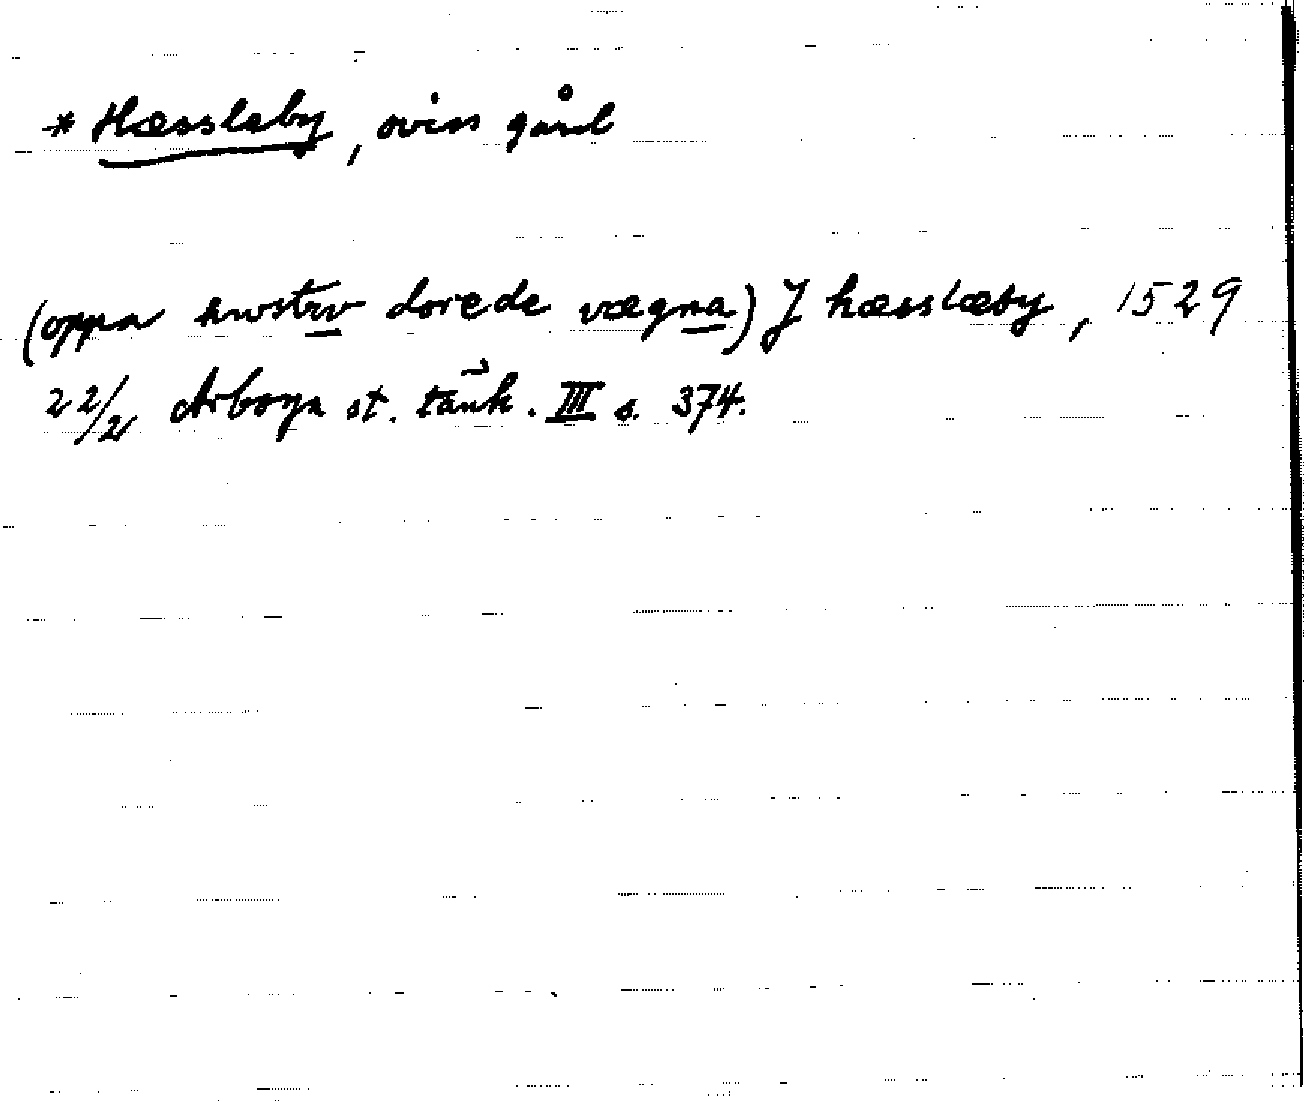 * Hæsslaby, oviss gård
(oppa hwstrv dorede vægna) J hæsslæby, 1529
22/2 Arboga st. tänk. III s. 374.